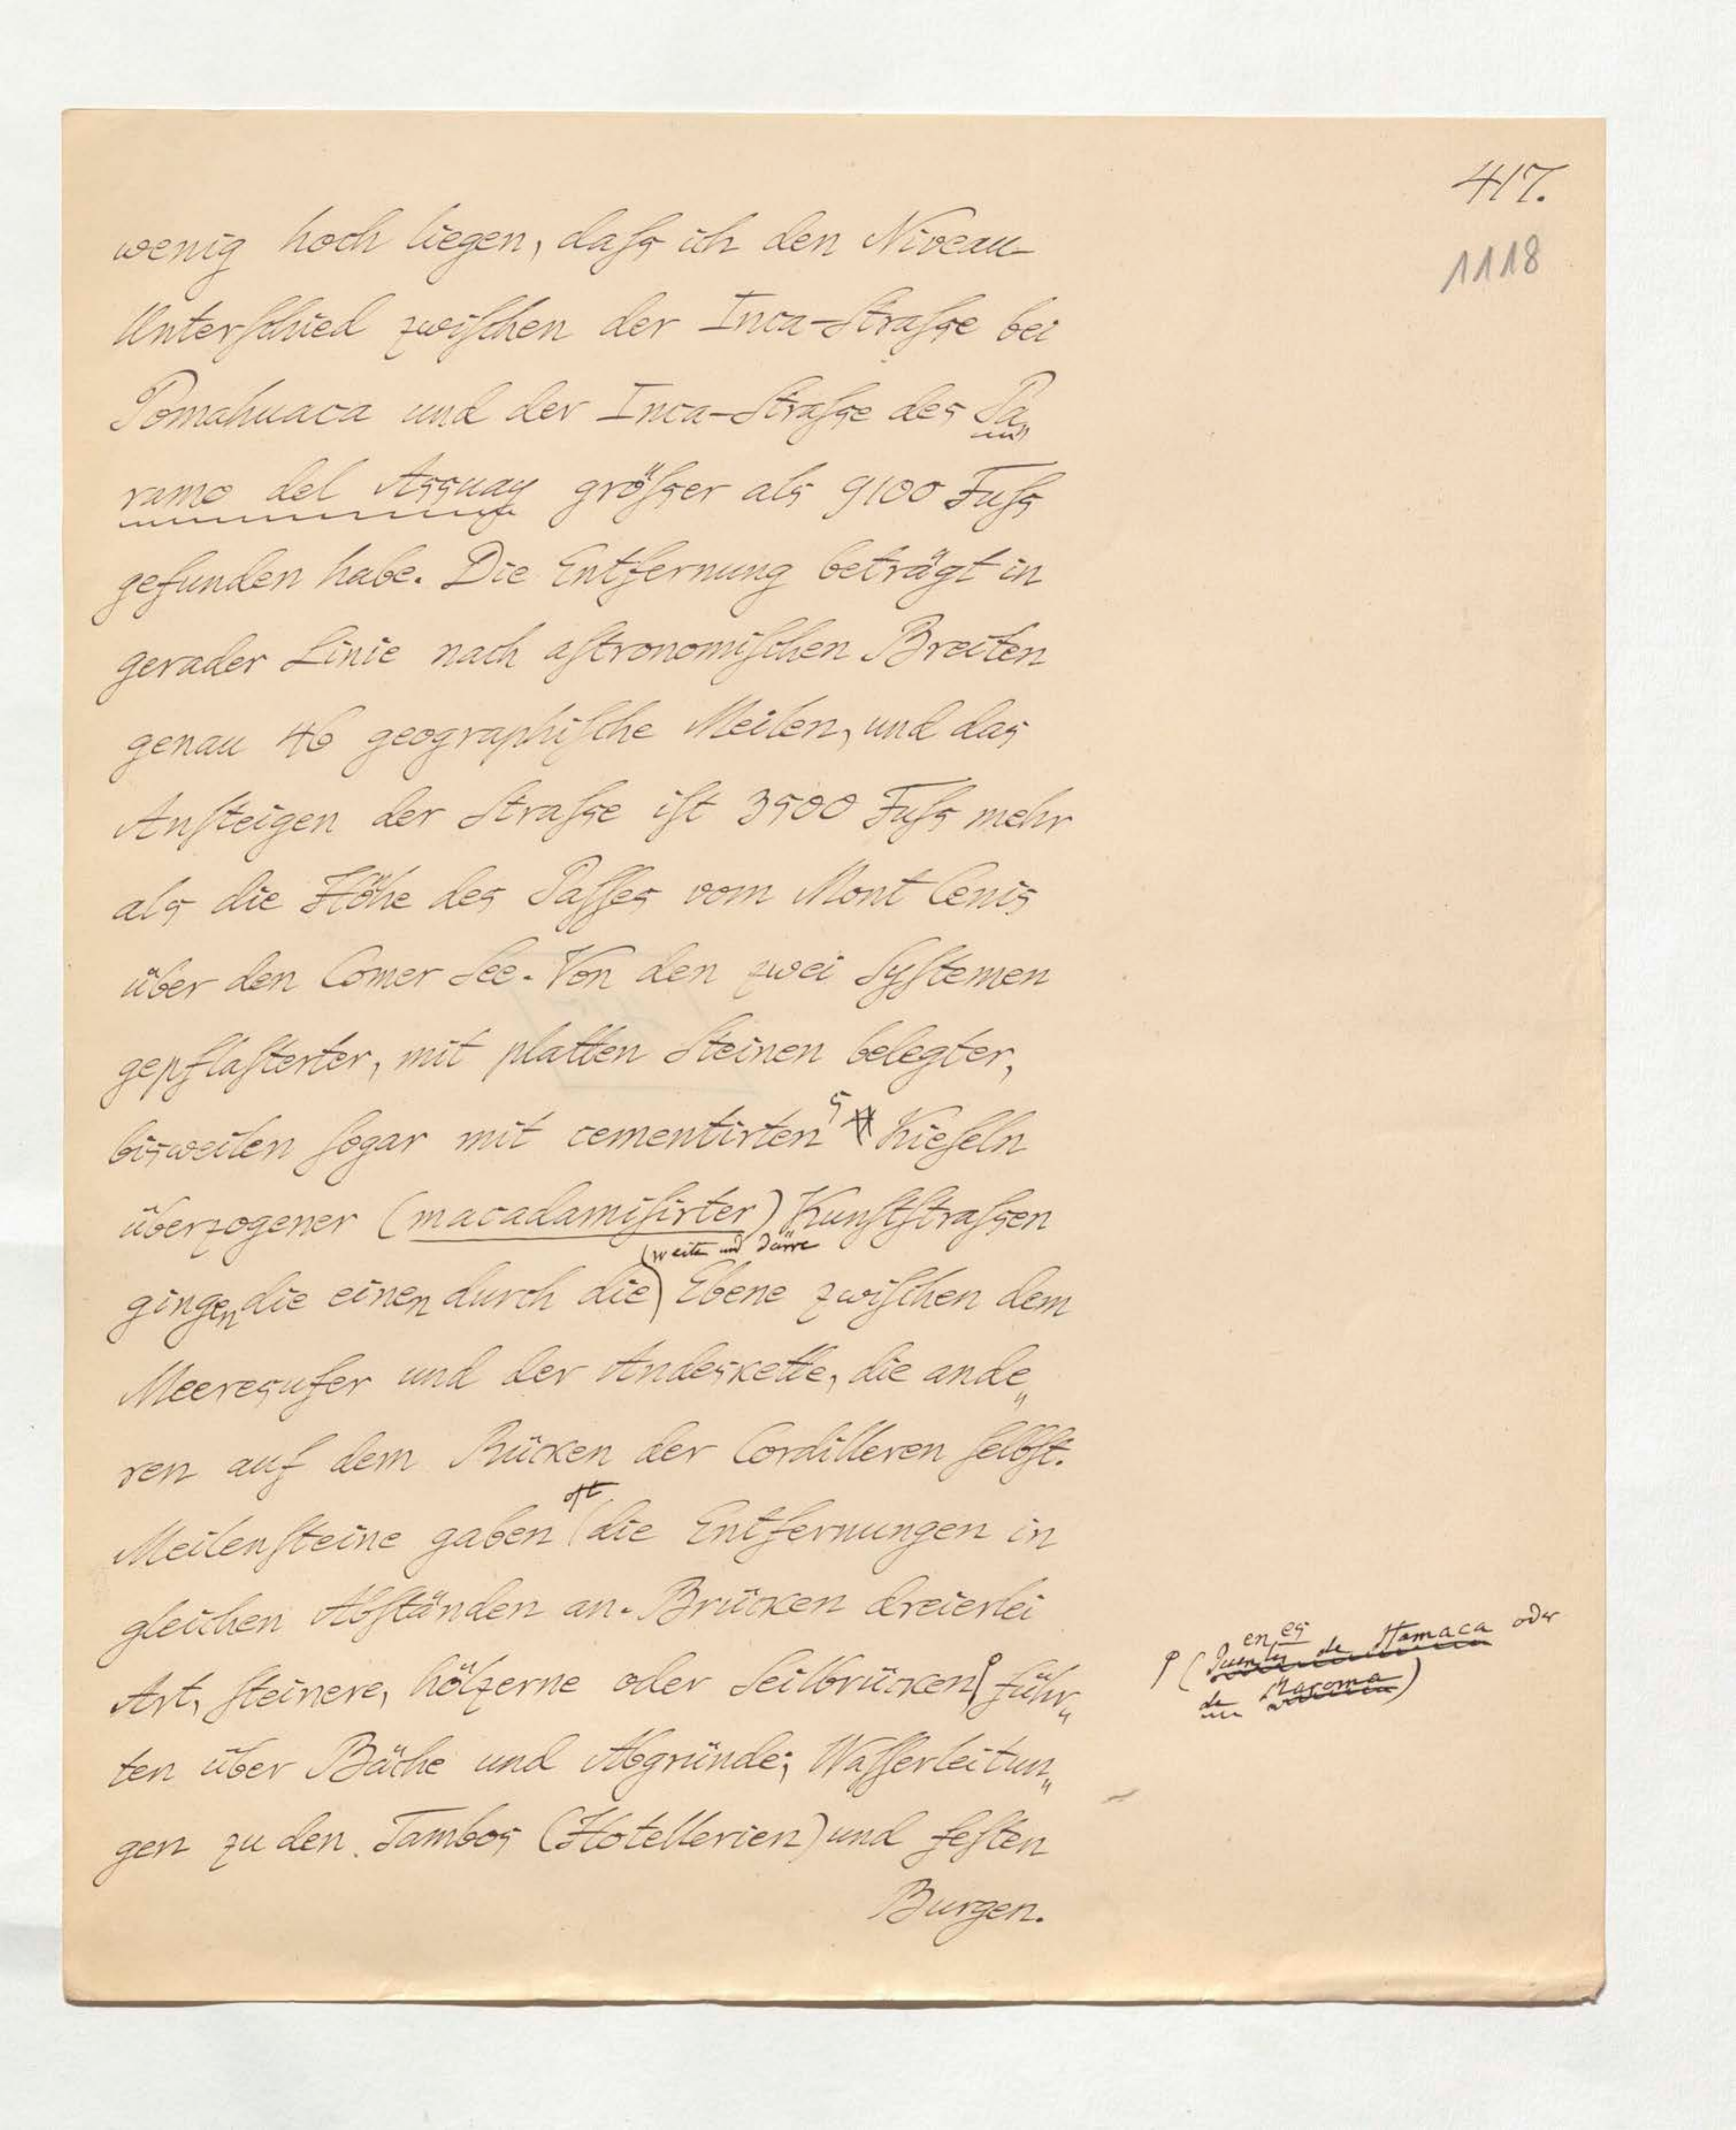 417.
1118
wenig hoch liegen, daſs ich den Niveau-
Unterſchied zwiſchen der Inca-Straſse bei
Pomahuaca und der Inca-Straſse des Pa„
ramo del Assuay gröſser als 9100 Fuſs
gefunden habe. Die Entfernung beträgt in
gerader Linie nach aſtronomiſchen Breiten
genau 46 geographiſche Meilen, und das
Anſteigen der Straſse iſt 3500 Fuſs mehr
als die Höhe des Paſſes vom Mont Cenis
über den Comer See. Von den zwei Syſtemen
gepflaſterter, mit platten Steinen belegter,
bisweilen ſogar mit cementirten Kieſeln
überzogener (macadamiſirter) Kunſtſtraſsen
(weite und dürre
gingen die einen durch die) Ebene zwiſchen dem
Meeresufer und der Andeskette, die ande„
ren auf dem Rücken der Cordilleren ſelbſt.
oft
Meilenſteine gaben die Entfernungen in
gleichen Abſtänden an. Brücken dreierlei
Art, ſteinere, hölzerne oder Seilbrücken führ„
(Puentes de Hamaca oder
de Maroma)
ten über Bäche und Abgründe; Waſſerleitun„
gen zu den Tambos (Hotellerien) und feſten
Burgen.